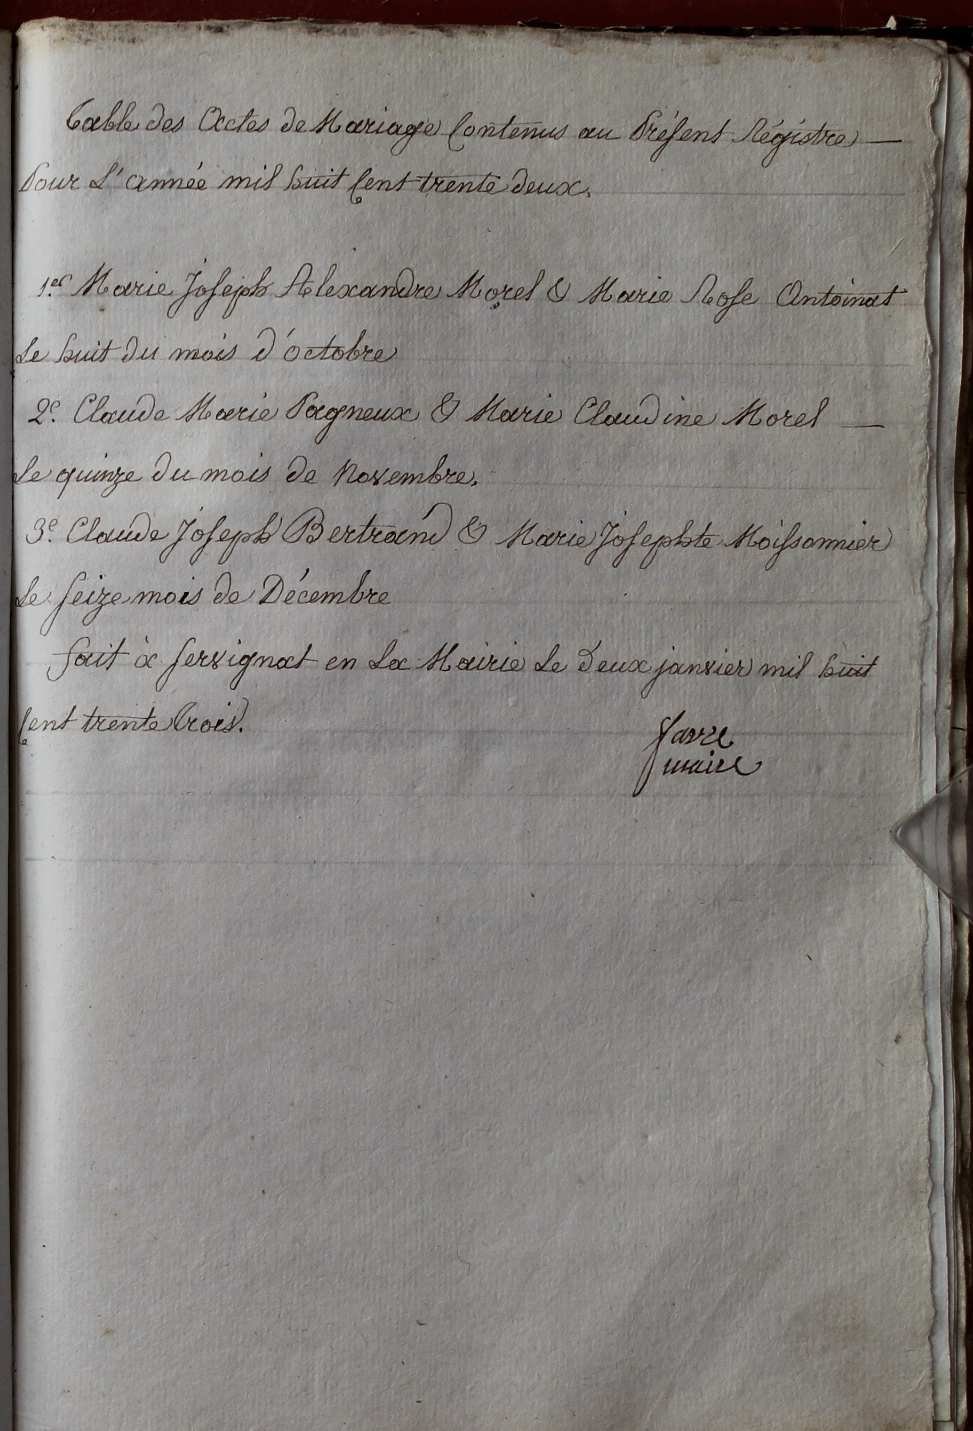 Table des Actes de Mariage Contenus au Présent Régistre —
Pour L'année mil huit Cent trente deux.
1er Marie Joseph Alexandre Morel & Marie Rose Antoinat
Le huit du mois d'octobre
2e. Claude Marie Pagneux & Marie Claudine Morel —
Le quinze du mois de Novembre.
3e. Claude Joseph Bertrand & Marie Josephte Moissonnier
Le Seize mois de Décembre
fait à Servignat en La Mairie Le Deux janvier mil huit
Cent trente trois.
favre
maire